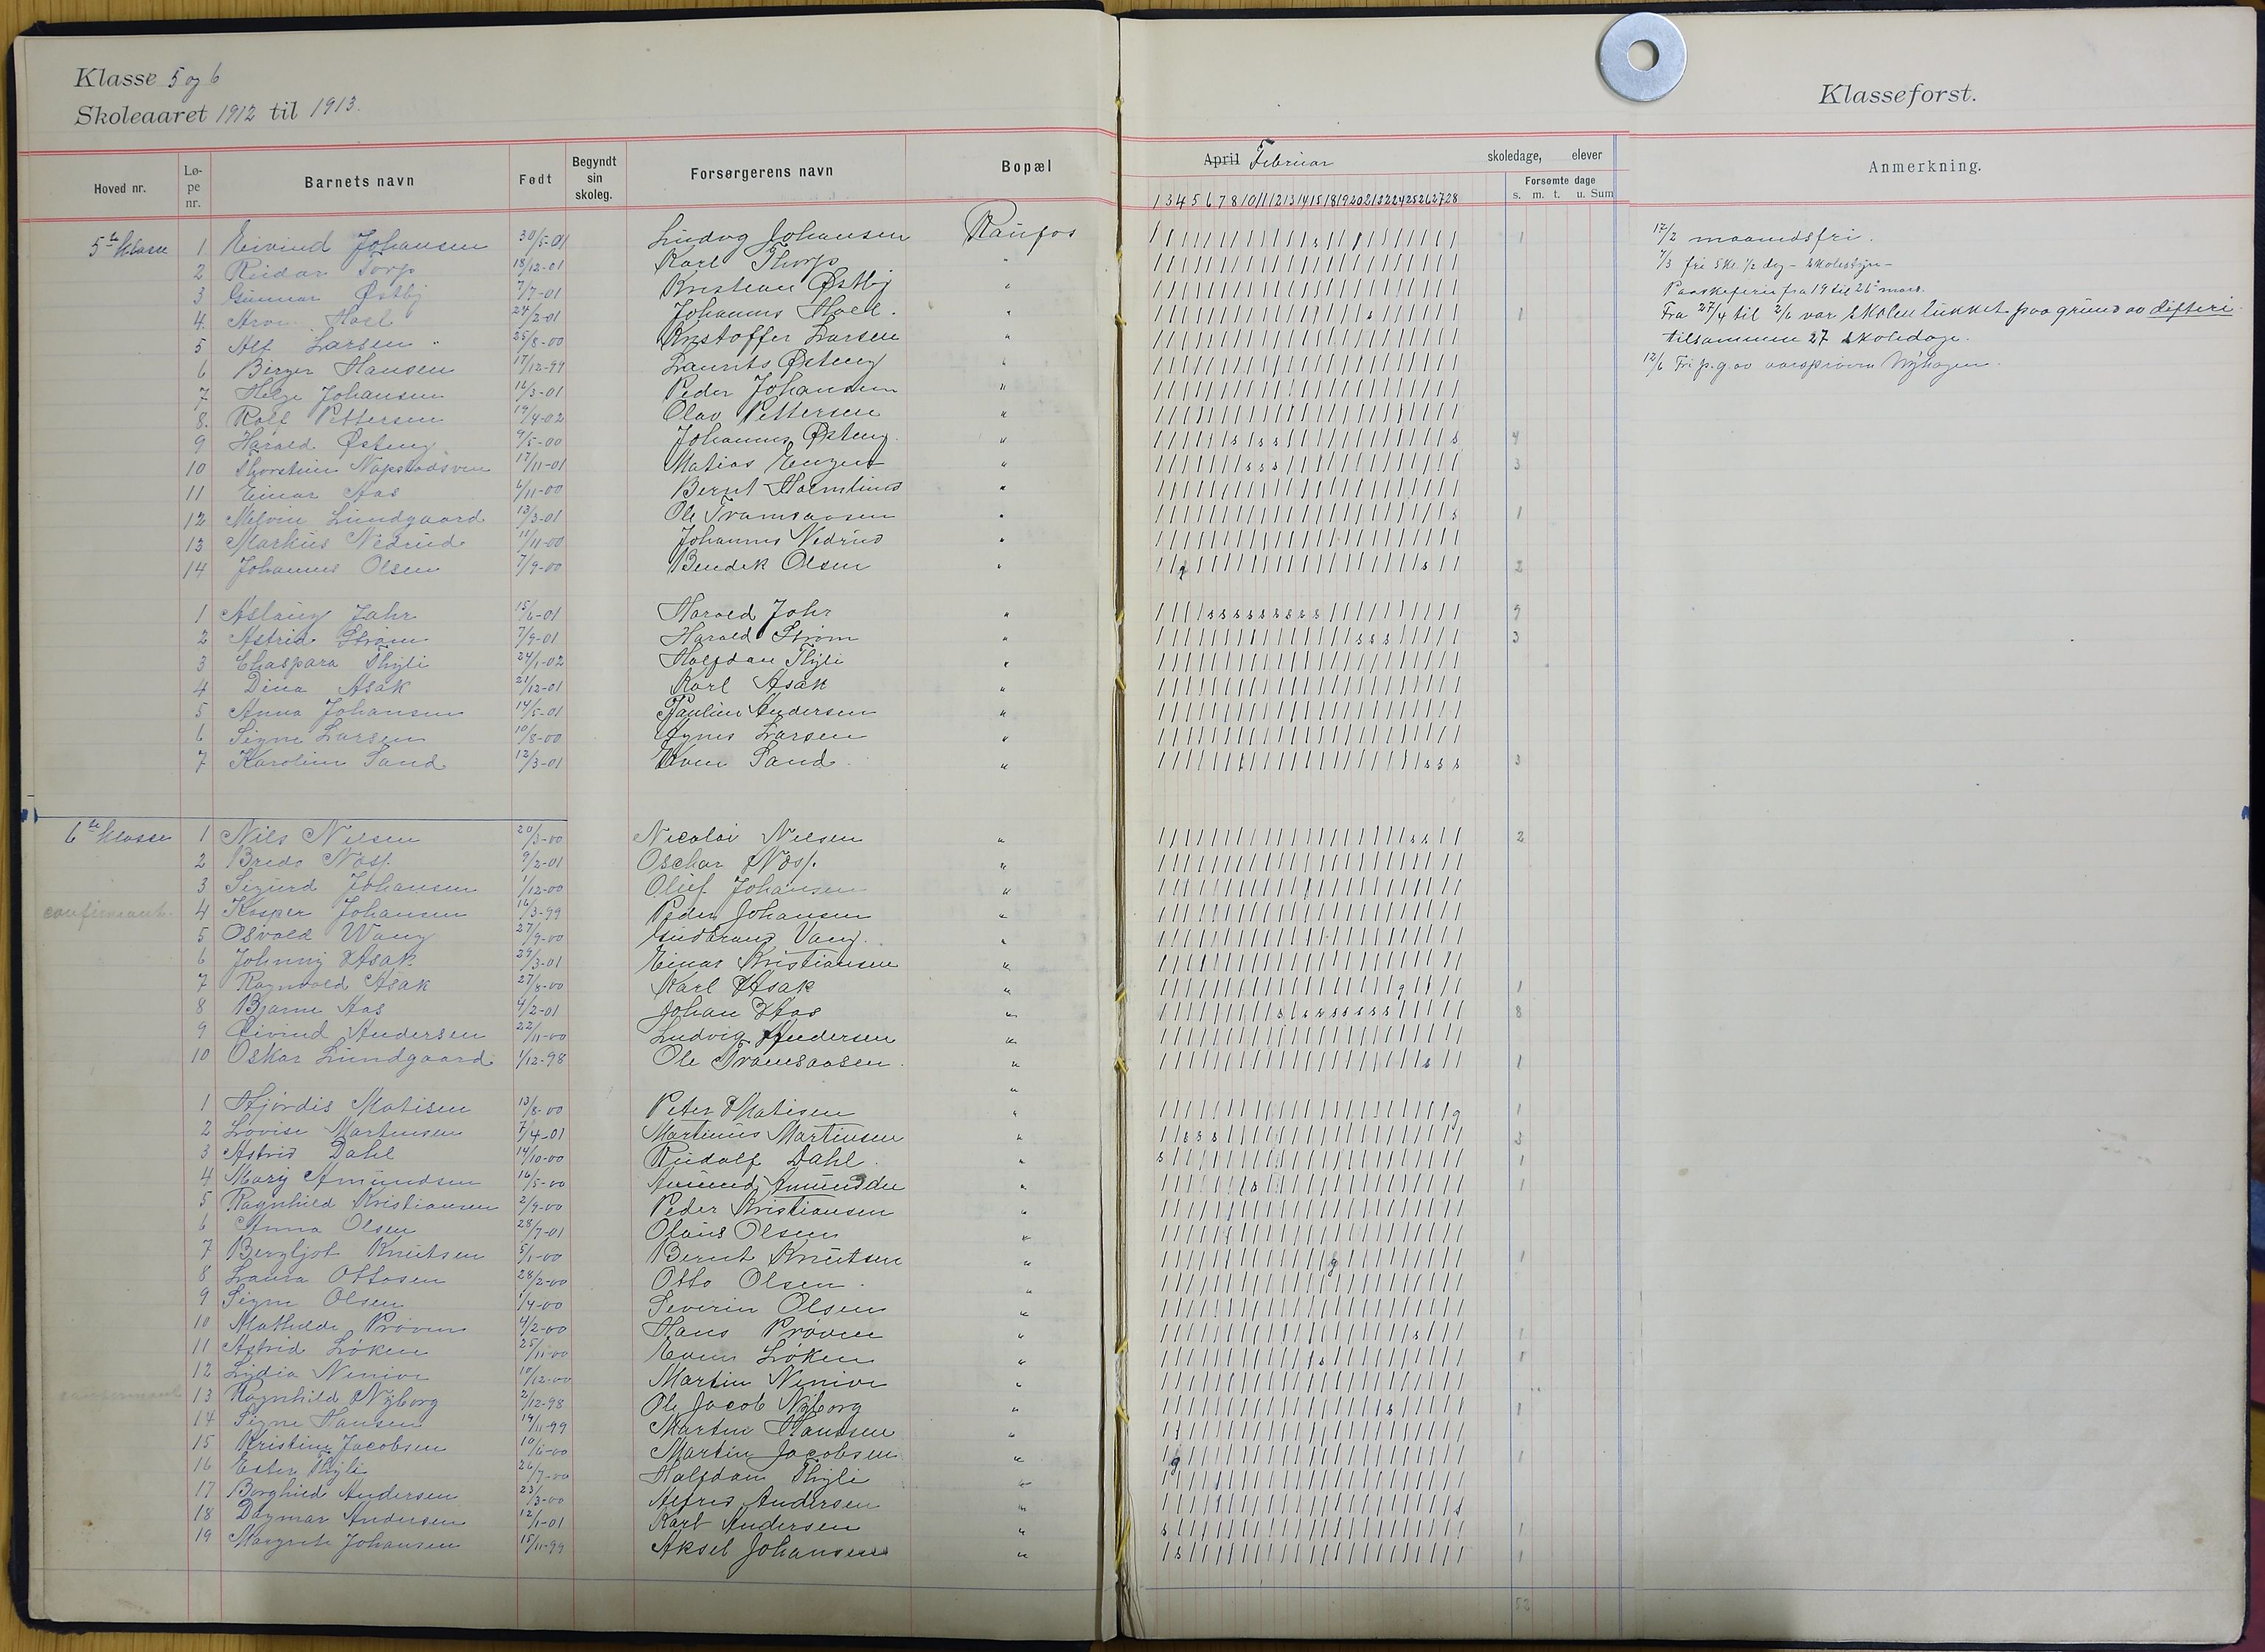 Klasse 5 og 6
Skoleaaret 1912 til 1913.
Klasseforst.
Hoved nr. Lø-pe nr. Barnets navn Født Begyndt sin skoleg. Forsørgerens navn Bopæl
April Februar skoledage, elever
Forsømte dage
s. m. t. u. Sum
Anmerkning.
1 3 4 5 6 7 8 10 11 12 13 14 15 18 19 20 21 22 24 25 26 27 28
5te Klasse 1 Eivind Johansen 30/5-01 Ludvg Johansen Raufos 1
2 Reidar Torp 18/12-01 Karl Thorp "
3 Gunnar Østby 7/7-01 Kristian Østby "
4 Arne Hoel 24/2-01 Johannes Hoel. " 1
5 Alf Larsen 25/8-00 Kristoffer Larsen "
6 Birger Hansen 17/12-99 Laurits Østeng "
7 Helge Johansen 12/3-01 Peder Johansen "
8. Rolf Pettersen 19/4-02 Olav Pettersen "
9 Harald Østeng 9/5-00 Johannes Østeng. " 4
10 Thorstein 17/11-01 Matias " 3
11 Einar Aas 6/11-00 Bernt "
12 Melvin Lundgaard 13/3-01 Ole " 1
13 Markus Nedrud 11/11-00 Johannes Nedrud "
14 Johannes Olsen 7/9-00 Bendik Olsen " 2
1 Aslaug Jahr 15/6-01 Harald Jahr " 9
2 Astrid Strøm 7/9-01 Harald Strøm " 3
3 Chaspara Thyli 24/1-02 Halfdan Thyli "
4 Dina Asak 21/12-01 Karl Asak "
5 Anna Johansen 14/5-01 Pauline Andersen "
6 Signe Larsen 10/8-00 Agnes Larsen "
7 Karoline Sand 12/3-01 Even Sand " 3
6te klasse 1 Nils Nilsen 20/3-00 Nicolai Nilsen " 2
2 Bredo Næss. 9/2-01 Oschar Næss. "
3 Sigurd Johansen 1/12-00 Oluf Johansen "
confirmant. 4 Kasper Johansen 16/3-99 Peder Johansen "
5 Osvald Wang 27/9-00 Gudbrand Vang. "
6 Johnny Asak 29/3-01 Einar Kristiansen "
7 Ragnvald Asak 27/8-00 Karl Asak " 1
8 Bjarne Aas 4/2-01 Johan Aas " 8
9 Eivind Andersen 22/11-00 Ludvig Andersen "
10 Oskar Lundgaard 1/12-98 Ole " 1
1 Hjørdis Matisen 13/8-00 Peter Matisen " 1
2 Lovise Martinsen 7/4-01 Martinius Martinsen " 3
3 Astrid Dahl 14/10-00 Rudolf Dahl. " 1
4 Mary Amundsen 16/5-00 Amund Amundsen " 1
5 Ragnhild Kristiansen 2/9-00 Peder Kristiansen "
6 Anna Olsen 28/7-01 Olaus Olsen "
7 Bergljot Knutsen 5/1-00 Bernt Knutsen " 1
8 Laura Ottosen 28/2-00 Otto Olsen. "
9 Signe Olsen 1/4-00 Severin Olsen "
10 Mathilde Prøven 4/2-00 Hans Prøven " 1
11 Astrid Løken 25/11-00 Even Løken " 1
12 Lydia 10/12-00 Martin "
confirmant 13 Ragnhild Nyborg 2/12-98 Ole Jacob Nyborg " 1
14 Signe Hansen 19/11-99 Martin Hansen "
15 Kristine Jacobsen 10/6-00 Martin Jacobsen " 1
16 Ester Thyli 26/7-00 Halfdan Thyli "
17 Borghild Andersen 23/3-00 Alfred Andersen "
18 Dagmar Andersen 12/1-01 Karl Andersen " 1
19 Margrete Johansen 15/11-99 Aksel Johansen " 1
52
12/2 maanedsfri.
7/3 fri 5 kl. 1/2 dag - skolestyr -
Paaskeferie fra 19 til 26 mars.
Fra 27/4 til 2/6 var skolen lukket paa grund av difteri.
tilsammen 27 skoledage.
12/6 Fri p.g.av aarsprøven Nyhagen.